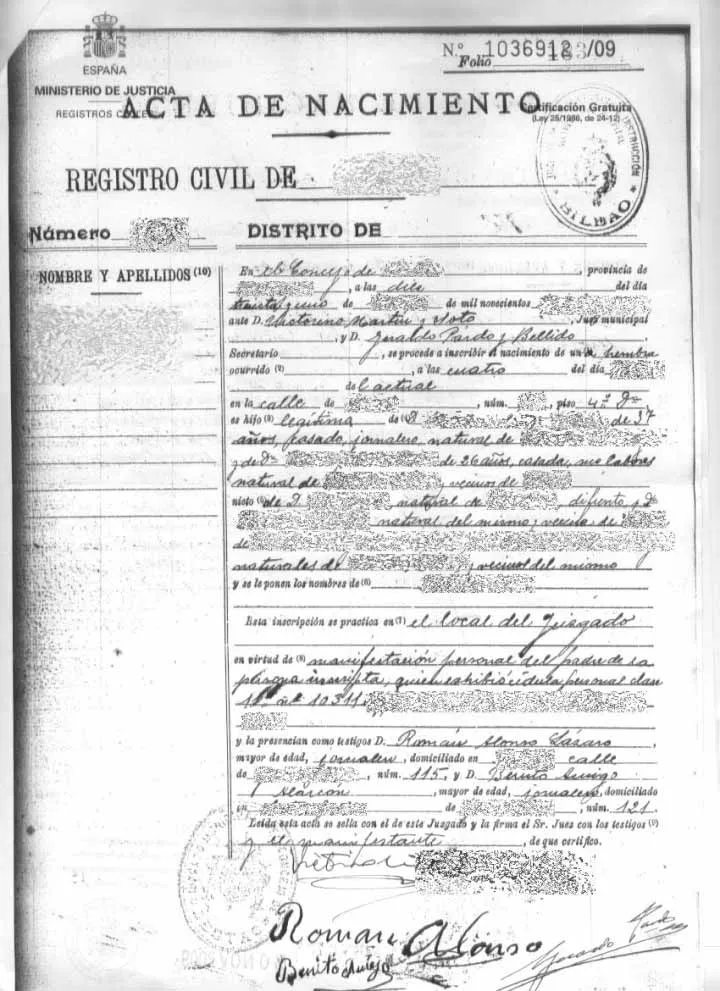 N.º 1036912/09
Folio 183
ESPAÑA
MINISTERIO DE JUSTICIA
REGISTROS CIVILES
ACTA DE NACIMIENTO
Certificación Gratuita
(Ley 25/1986, de 24-12)
BILBAO
REGISTRO CIVIL DE
Número
DISTRITO DE
NOMBRE Y APELLIDOS (10)
En el Concejo de , provincia de
, a las diez del día
treinta y uno de de mil novecientos
ante D. Victorino Martín y Soto , Juez municipal
, y D. Geraldo Pardo y Bellido
Secretario , se procede a inscribir el nacimiento de una hembra
ocurrido (2) , a las cuatro del día
del actual
en la calle de , núm. , piso 4.º
es hijo (3) legítima de D. de 37
años, casado, jornalero, natural de
y de Dª de 26 años, casada, sus labores
natural de y vecinos de
nieto de D. natural de , difunto, y Dª
natural del mismo y vecina de
de
naturales de y vecinos del mismo
y se le ponen los nombres de (6)
Esta inscripción se practica en (7) el local del Juzgado
en virtud de (8) manifestación personal del padre de la
inscripta, quien exhibió cédula personal clase
11ª nº 10311
y la presencian como testigos D. Román Alonso Lázaro
mayor de edad, jornalero, domiciliado en calle
de , núm. 115, y D. Benito
Alarcón , mayor de edad, jornalero, domiciliado
en de , núm. 121
Leída esta acta se sella con el de este Juzgado y la firma el Sr. Juez con los testigos (9)
y el manifestante , de que certifico.
Roman Alonso
Benito
Gerardo Pardo